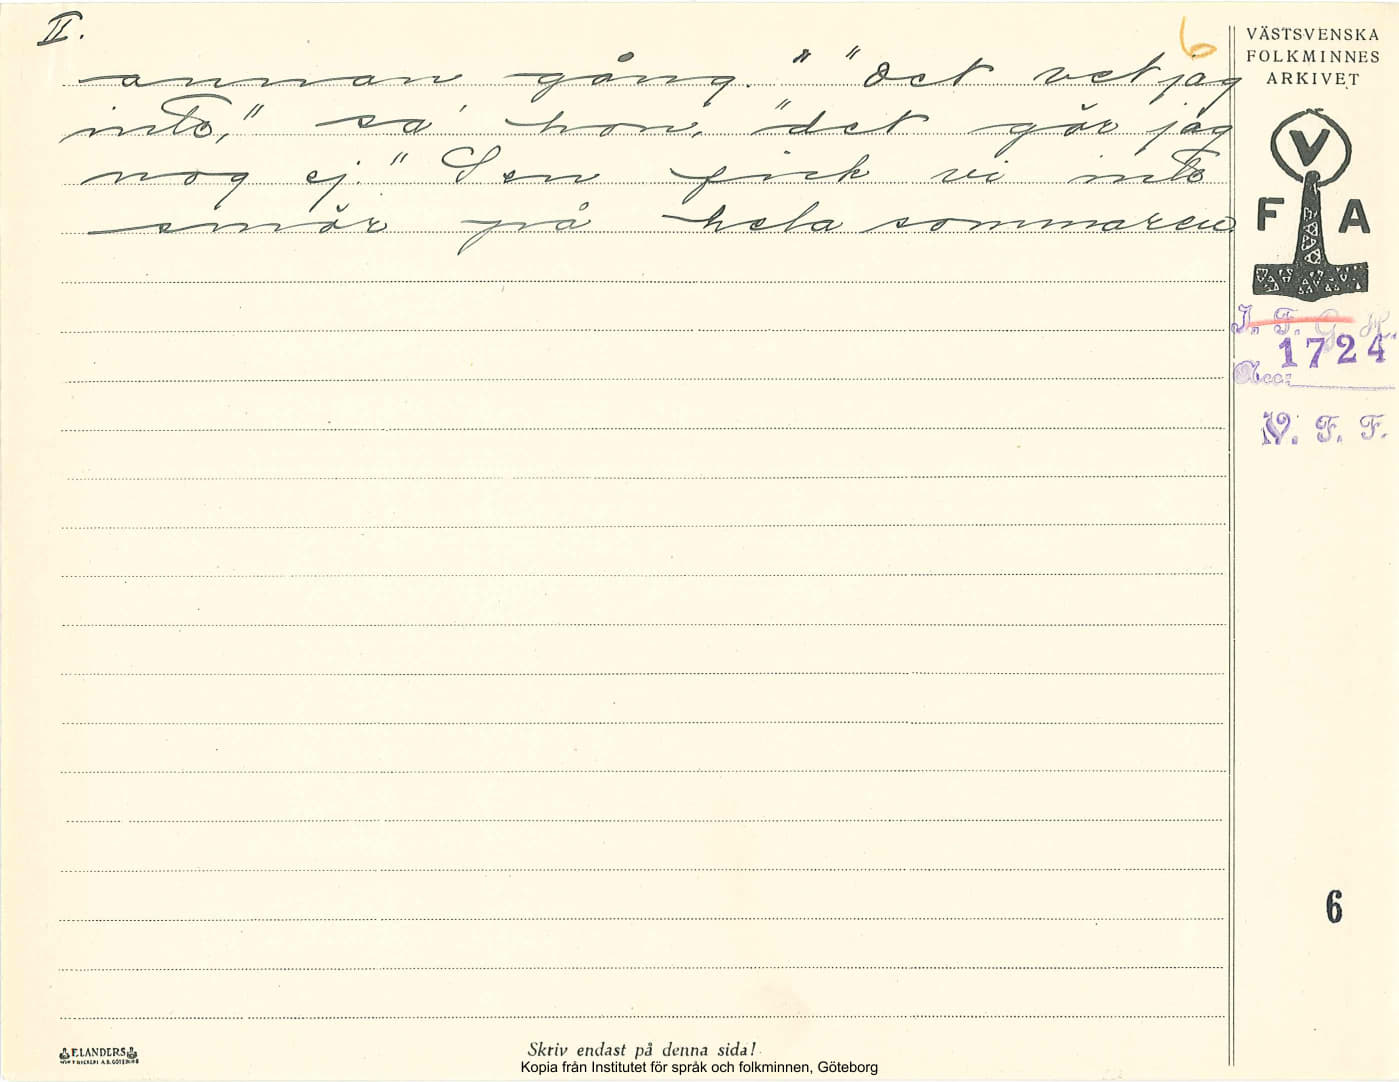 II.
6
annan gång." "Det vet jag
inte," sa' hon, "det gör jag
nog ej." Sen fick vi inte
smör på hela sommaren
VÄSTSVENSKA
FOLKMINNES
ARKIVET
V
F A
I. F. G. H.
1724
Acc:
V. F. F.
6
F. LANDERS
Skriv endast på denna sida!
Kopia från Institutet för språk och folkminnen, Göteborg